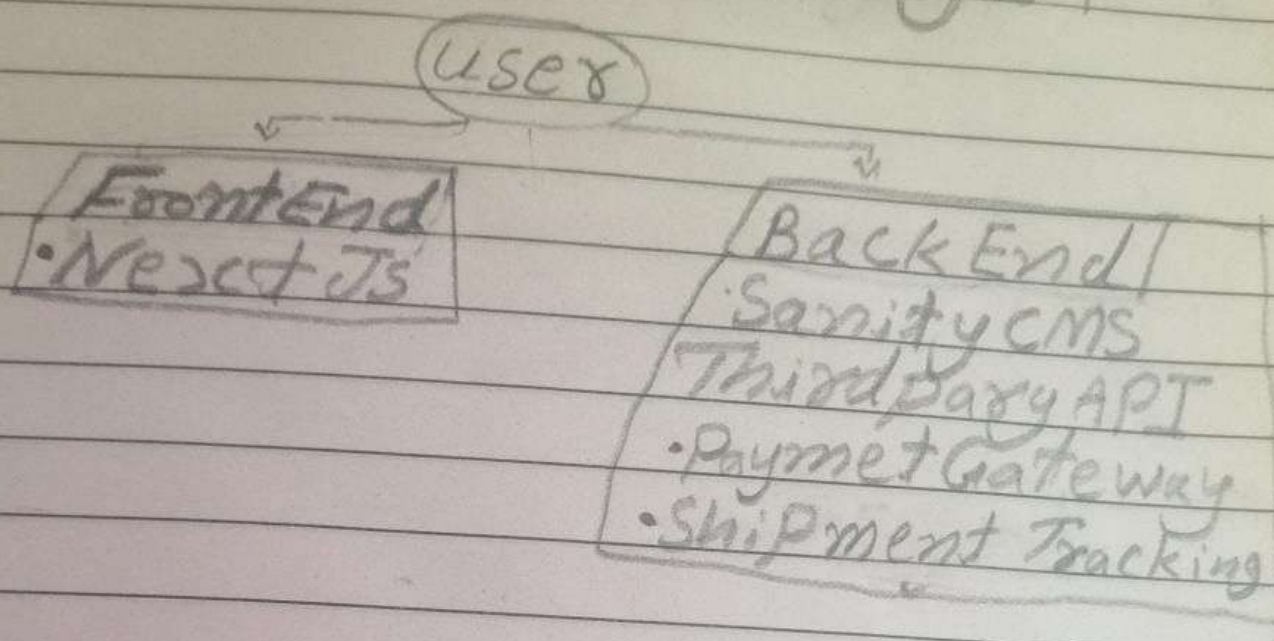 user
FrontEnd
• Next Js
Back End
• Sanity CMS
Third Pary API
• Paymet Gateway
• Shipment Tracking